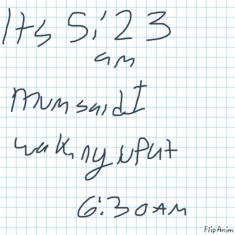 Its 5:23
am
mum said I
waking up at
6:30 AM
FlipAnim